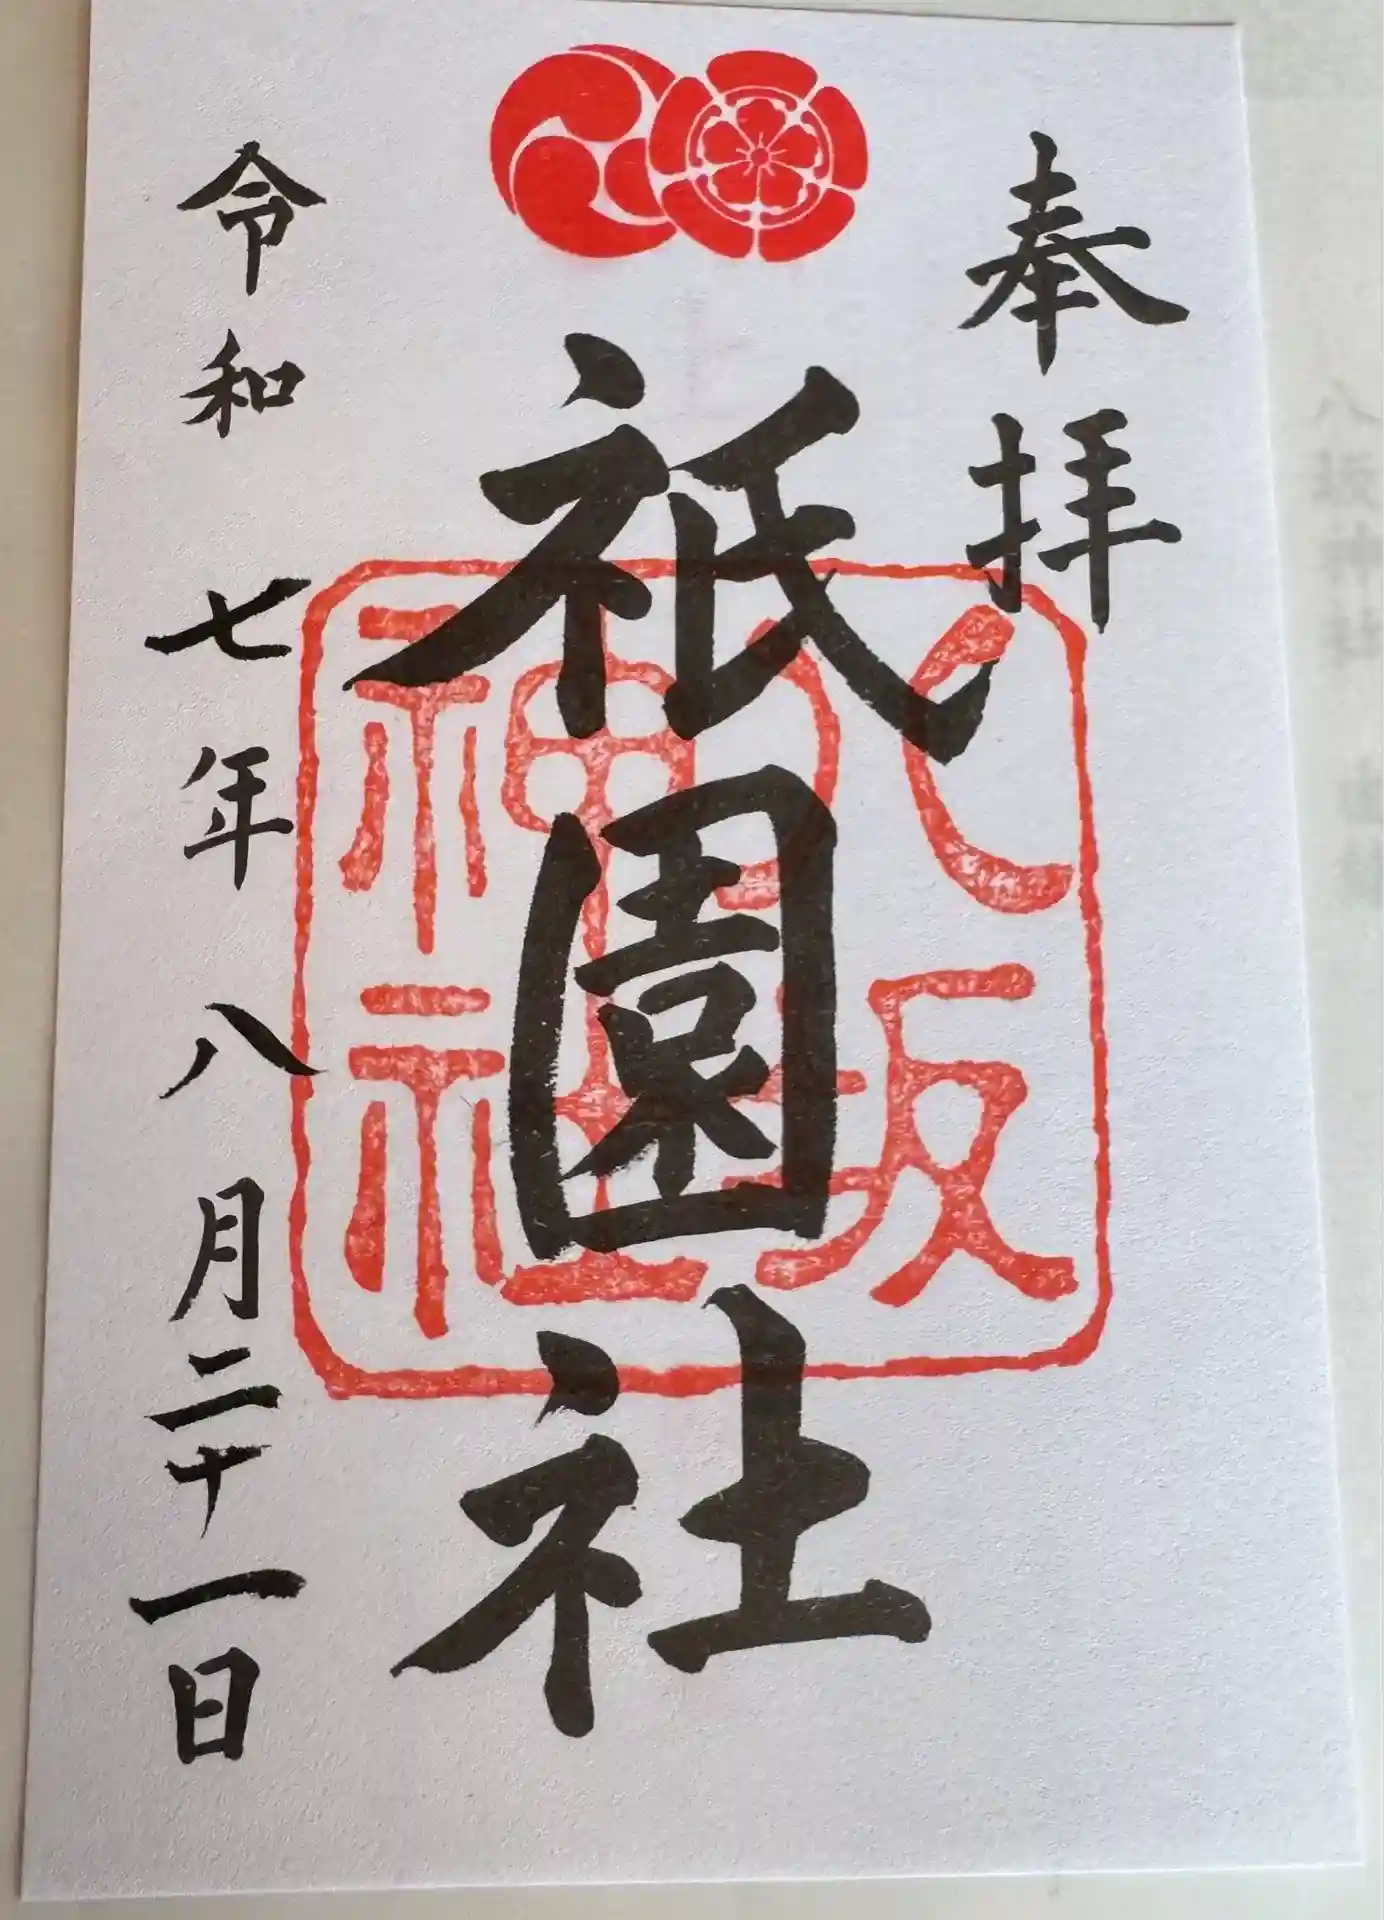 奉拝
八坂神社
祇園社
令和七年八月二十一日